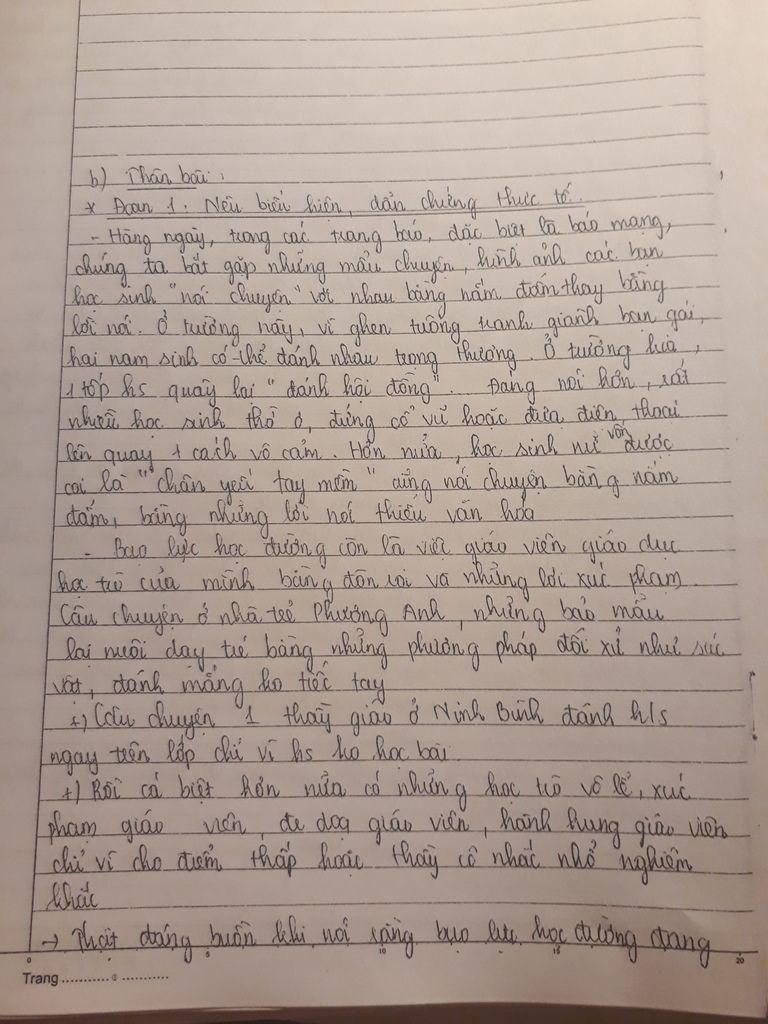 b) Thân bài:
* Đoạn 1. Nêu biểu hiện, dẫn chứng thực tế.
- Hàng ngày, trong các trang báo, đặc biệt là báo mạng,
chúng ta bắt gặp những mẩu chuyện, hình ảnh các bạn
học sinh "nói chuyện" với nhau bằng nắm đấm thay bằng
lời nói. Ở trường này, vì ghen tuông tranh giành bạn gái,
hai nam sinh có thể đánh nhau trọng thương. Ở trường kia,
1 tốp hs quay lại "đánh hội đồng". Đáng nói hơn, rất
nhiều học sinh thờ ơ, đứng cổ vũ hoặc đưa điện thoại
lên quay 1 cách vô cảm. Hơn nữa, học sinh nữ vốn được
coi là "chân yếu tay mềm" cũng nói chuyện bằng nắm
đấm, bằng những lời nói thiếu văn hóa
- Bạo lực học đường còn là việc giáo viên giáo dục
học trò của mình bằng đòn roi và những lời xúc phạm.
Câu chuyện ở nhà trẻ Phương Anh, những bảo mẫu
lại nuôi dạy trẻ bằng những phương pháp đối xử như súc
vật, đánh mắng ko tiếc tay
+) Câu chuyện 1 thầy giáo ở Ninh Bình đánh h/s
ngay trên lớp chỉ vì hs ko học bài.
+) Rồi cá biệt hơn nữa có những học trò vô lễ, xúc
phạm giáo viên, đe dọa giáo viên, hành hung giáo viên
chỉ vì cho điểm thấp hoặc thầy cô nhắc nhở nghiêm
khắc
→ Thật đáng buồn khi nói rằng bạo lực học đường đang
0 5 10 15 20
Trang